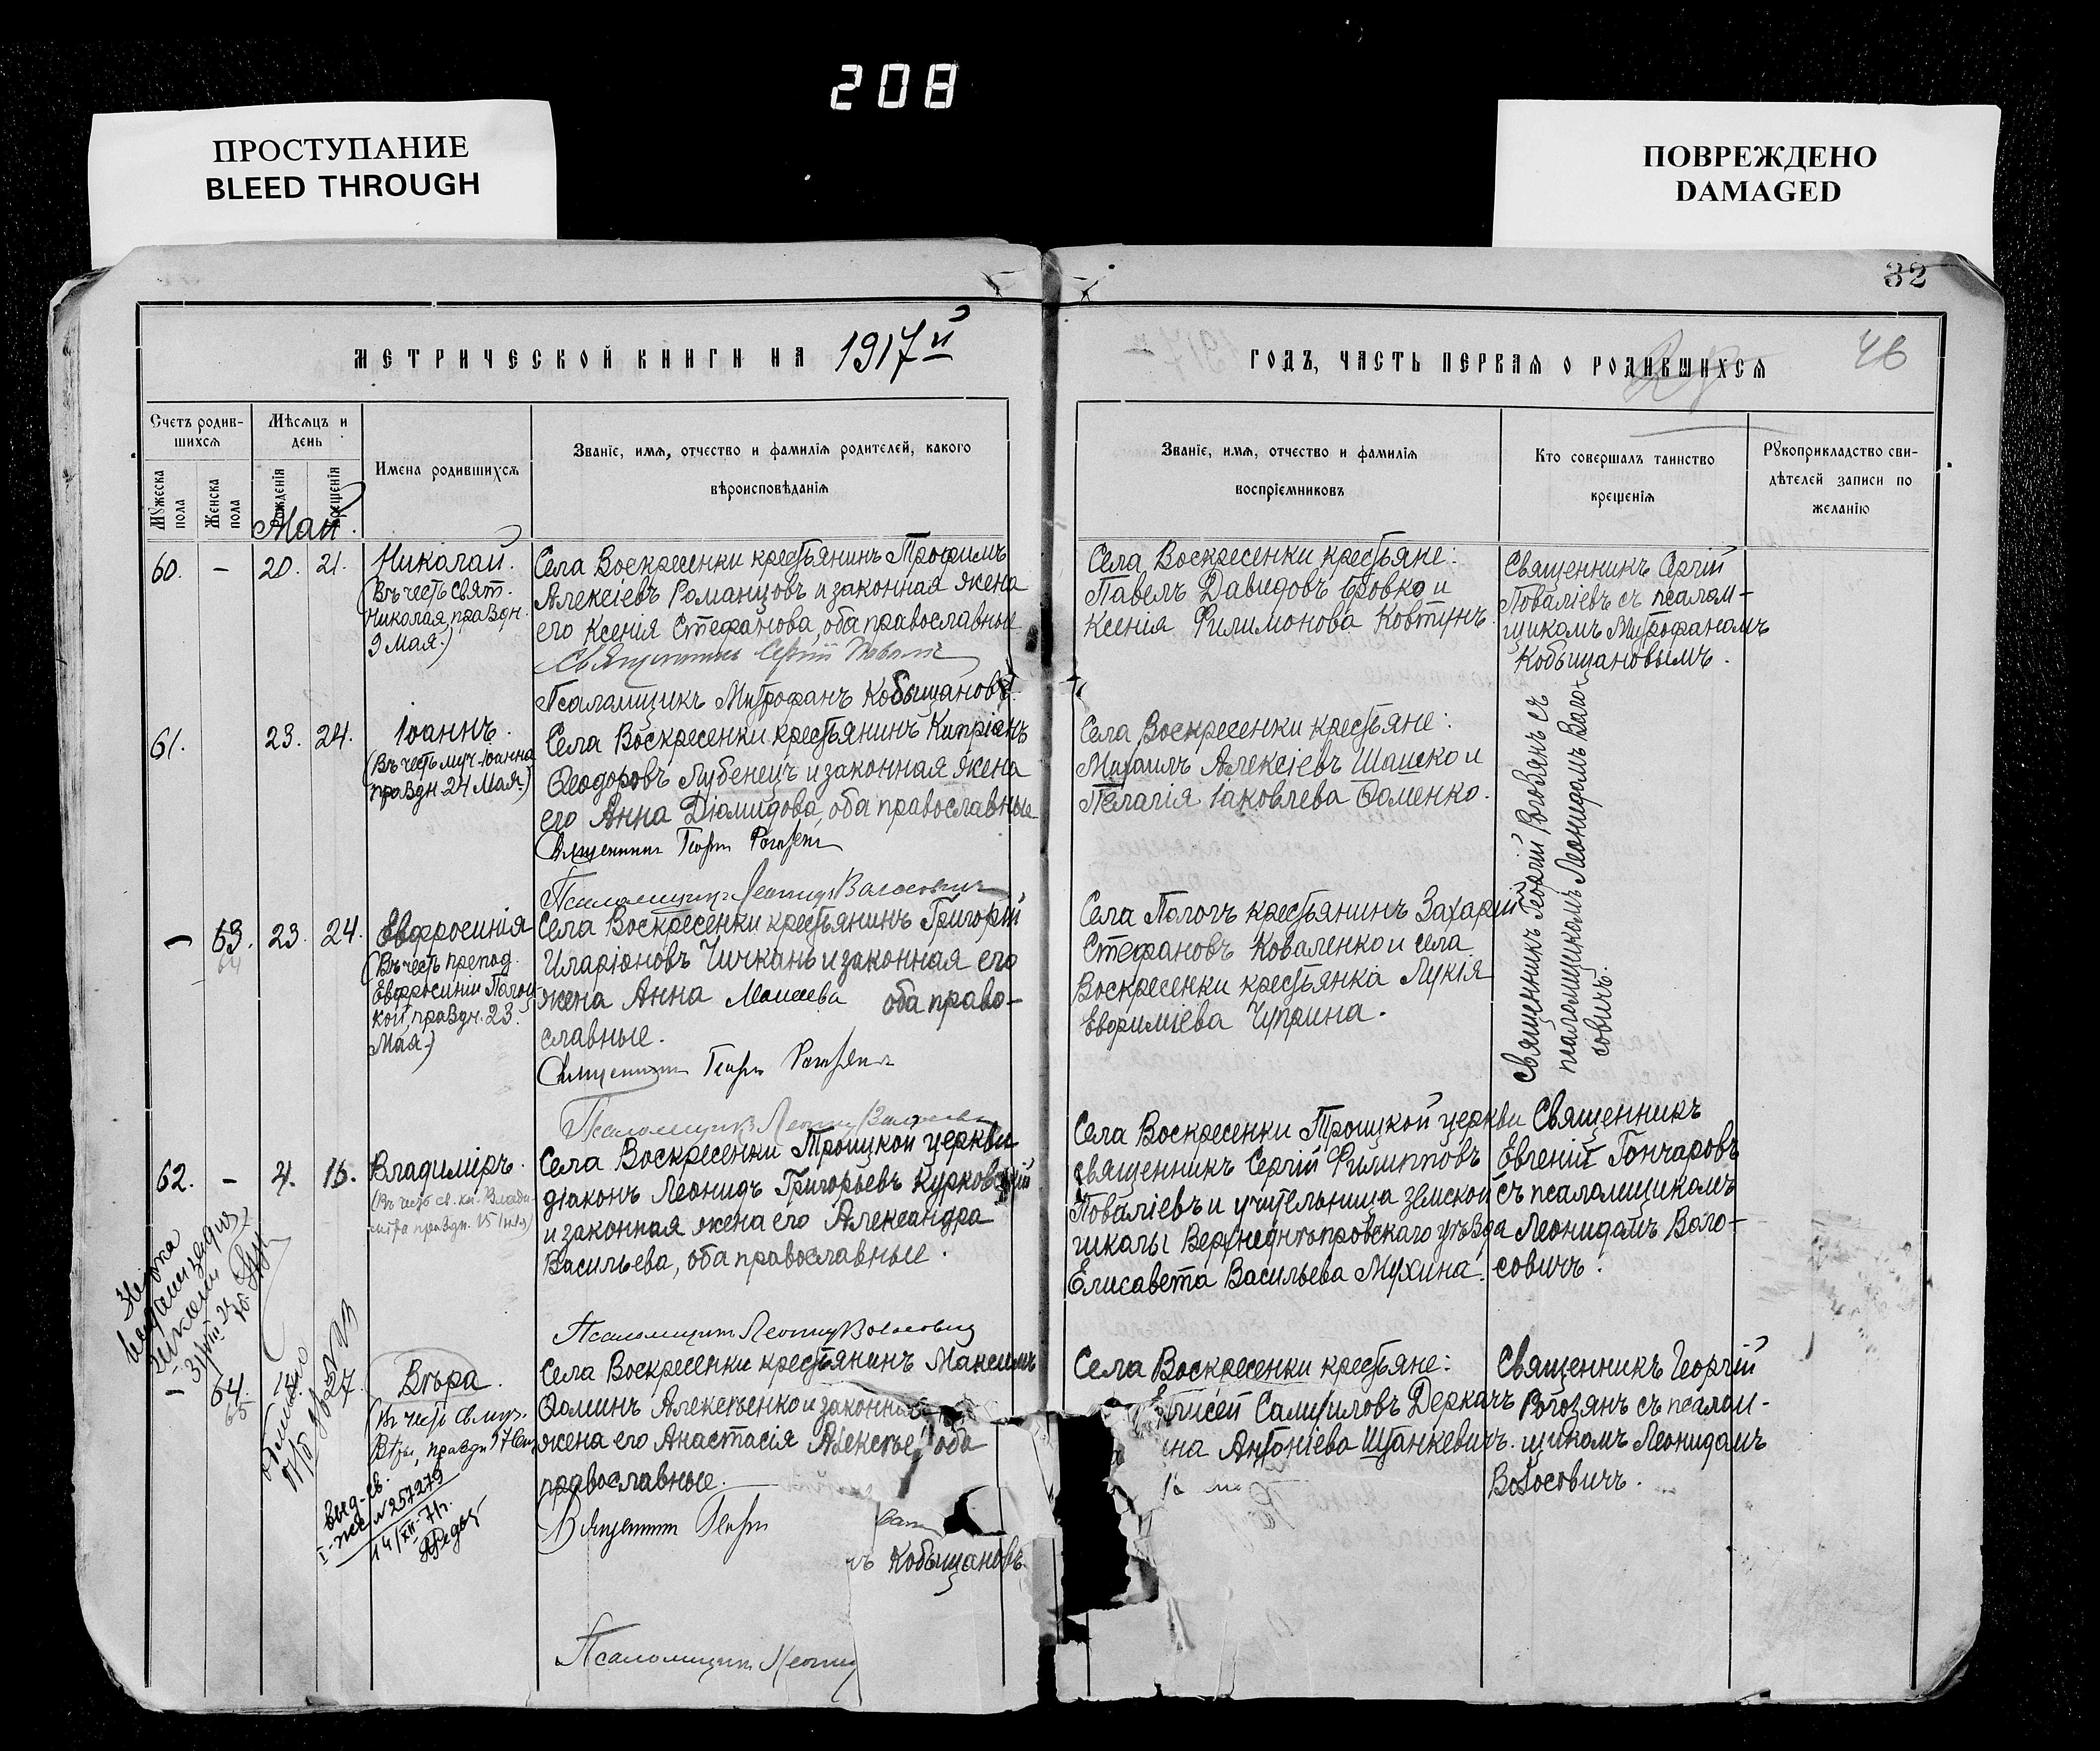 208
ПРОСТУПАНИЕ
BLEED THROUGH
ПОВРЕЖДЕНО
DAMAGED
32
46
МЕТРИЧЕСКОЙ КНИГИ НА 1917й
ГОДЪ, ЧАСТЬ ПЕРВАЯ О РОДИВШИХСЯ
Счетъ родив-
шихся
Мужеска пола
Женска пола
Мѣсяцъ и
день
Рожденія
Крещенія
Имена родившихся
Званіе, имя, отчество и фамилія родителей, какого
вѣроисповѣданія
Званіе, имя, отчество и фамилія
воспріемниковъ
Кто совершалъ таинство
крещенія
Рукоприкладство сви-
дѣтелей записи по
желанію
Май.
60. – 20. 21.
Николай.
(Въ честь свят.
Николая, праздн.
9 Мая.)
Села Воскресенки крестьянинъ Трофимъ
Алексіевъ Романцовъ и законная жена
его Ксенія Стефанова, оба православные
Священникъ Сергій
Псаломщикъ Митрофанъ Кобыщановъ.
Села Воскресенки крестьяне:
Павелъ Давидовъ Бровко и
Ксенія Филимонова Ковтунъ.
Священникъ Сергій
Поваліевъ съ псалом-
щикомъ Митрофаномъ
Кобыщановымъ.
61. 23. 24.
Іоаннъ.
(Въ честь муч. Іоанна
праздн. 24 Мая.)
Села Воскресенки крестьянинъ Кипріанъ
Ѳеодоровъ Лубенецъ и законная жена
его Анна Діомидова, оба православные
Священникъ Георгій
Псаломщикъ Леонидъ Волосовичъ
Села Воскресенки крестьяне:
Михаилъ Алексіевъ Шашко и
Пелагія Іаковлева Ѳоменко.
Священникъ Георгій Рогозянъ съ
псаломщикомъ Леонидомъ Воло-
совичъ.
– 63. 23. 24.
64
Евфросинія
(Въ честь препод.
Евфросиніи Полоц-
кой, праздн. 23.
Мая.)
Села Воскресенки крестьянинъ Григорій
Иларіоновъ Чичканъ и законная его
жена Анна Моисеева оба право-
славные.
Священникъ Георгій
Псаломщикъ Леонидъ
Села Пологъ крестьянинъ Захарій
Стефановъ Коваленко и села
Воскресенки крестьянка Лукія
Евфиміева Чуприна.
62. – 4. 15.
Владиміръ.
(Въ честь св. кн. Влади-
міра праздн. 15 Іюля)
Села Воскресенки Троицкой церкви
діаконъ Леонидъ Григорьевъ Курковскій
и законная жена его Александра
Васильева, оба православные.
Псаломщикъ Леонидъ Волосовичъ
Села Воскресенки Троицкой церкви
священникъ Сергій Филипповъ
Поваліевъ и учительница земской
школы Верхнеднѣпровскаго уѣзда
Елисавета Васильева Мухина.
Священникъ
Евгеній Гончаровъ
съ псаломщикомъ
Леонидомъ Воло-
совичъ.
– 64. 27.
65
Вѣра.
(Въ честь св. муч.
Вѣры, праздн. 17 Сен.
Села Воскресенки крестьянинъ Максимъ
Ѳоминъ Алексѣенко и законная
жена его Анастасія Алексѣе оба
православные.
Священникъ Георгій
Кобыщановъ
Псаломщикъ Леонид
Села Воскресенки крестьяне:
Елисей Самуиловъ Деркачъ
на Антоніева Шуанкевичъ.
Священникъ Георгій
Рогозянъ съ псалом-
щикомъ Леонидомъ
Волосовичъ.
выд-св.
I-ЖС №257279
14/XII-71г.